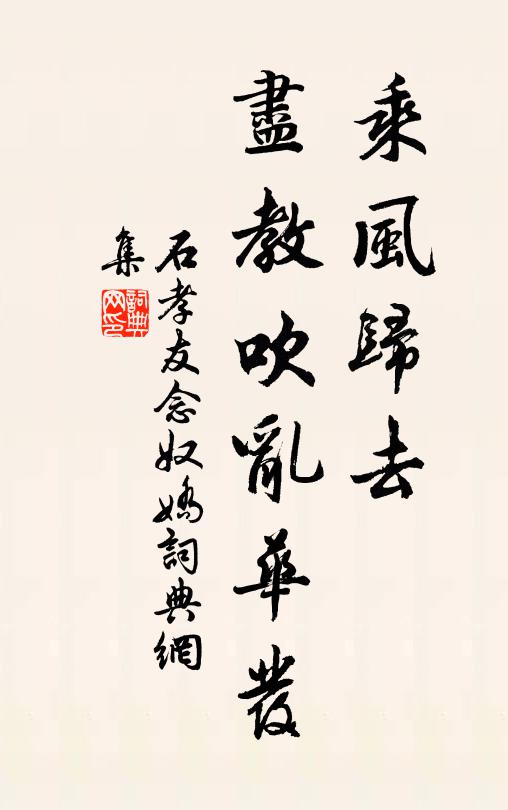 乘風歸去
盡教吹亂華髮
石孝友念奴嬌詞典網
集
詞典
网印